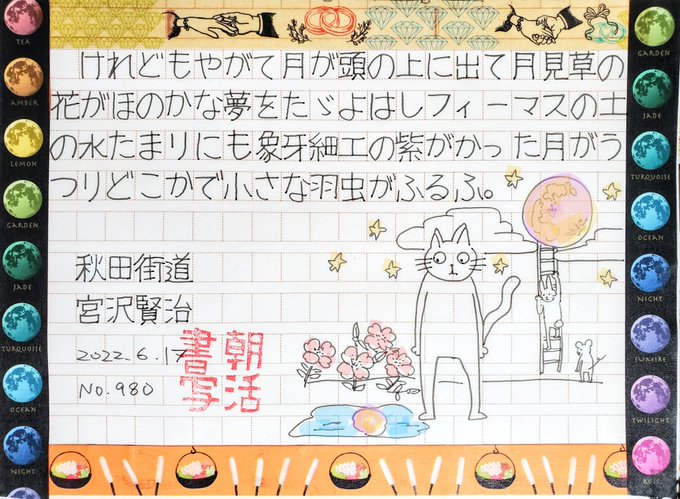 けれどもやがて月が頭の上に出て月見草の
花がほのかな夢をたゞよはしフィーマスの土
の水たまりにも象牙細工の紫がかった月がう
つりどこかで小さな羽虫がふるふ。
秋田街道
宮沢賢治
2022.6.17
No.980
朝活
書写
TEA
AMBER
LEMON
GARDEN
JADE
TURQUOISE
OCEAN
NIGHT
GARDEN
JADE
TURQUOISE
OCEAN
NIGHT
TWILIGHT
ROSE